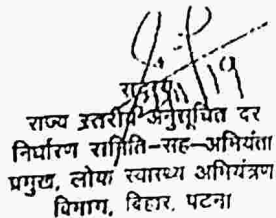 राज्य स्तरीय अनुसूचित दर
निर्धारण समिति-सह-अभियंता
प्रमुख, लोक स्वास्थ्य अभियंत्रण
विभाग, बिहार, पटना